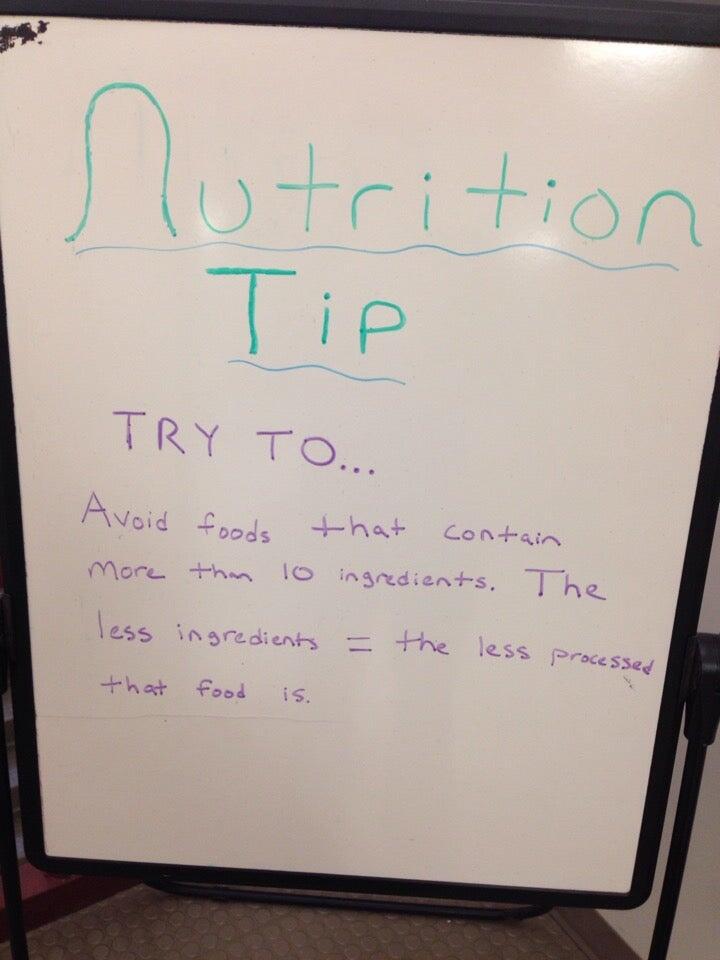 Nutrition
Tip
TRY TO...
Avoid foods that contain
more than 10 ingredients. The
less ingredients = the less processed
that food is.